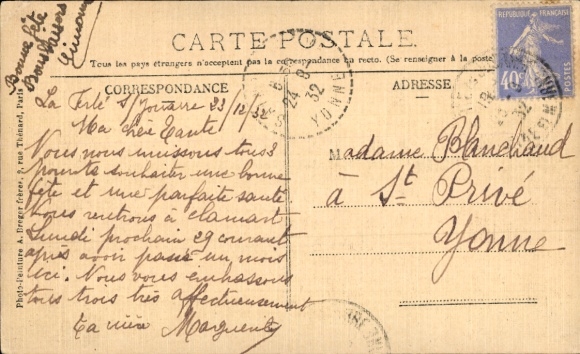 Bonne fête
Bons baisers
Simone
CARTE POSTALE
Tous les pays étrangers n'acceptent pas la correspondance au recto. (Se renseigner à la poste
CORRESPONDANCE
ADRESSE
RÉPUBLIQUE FRANÇAISE
40c
POSTES
24 - 8
32
YONNE
La Ferté s/ Jouarre 23/ /32
Ma chère Tante
Nous nous unissons tous 3
pour te souhaiter une bonne
fête et une parfaite santé
Nous rentrons à Clamart
Lundi prochain 29 courant
après avoir passé un mois
ici. Nous vous embrassons
tous trois très affectueusement
Ta nièce Marguerite
Madame Blanchaud
à St. Privé
Yonne
Photo-Peinture A. Breger frères, 9, rue Thénard, Paris